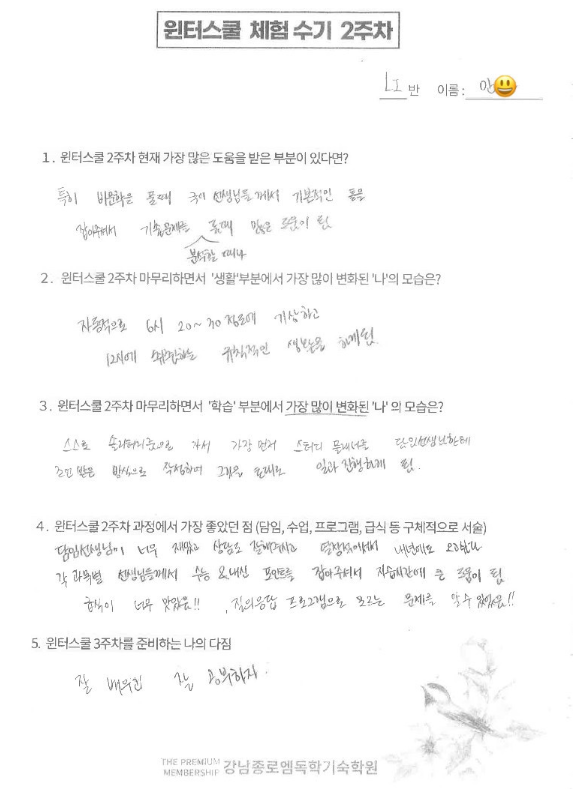 윈터스쿨 체험 수기 2주차
반 이름 :
1. 윈터스쿨 2주차 현재 가장 많은 도움을 받은 부분이 있다면?
특히 비문학은 풀때 국어 선생님들께서 기본적인 틀을
잡아주셔서 기출문제를 풀때 많은 도움이 됨
분석할 때나
2. 윈터스쿨 2주차 마무리하면서 '생활'부분에서 가장 많이 변화된 '나'의 모습은?
자동적으로 6시 20~30정도에 기상하고
12시에 취침하는 규칙적인 생활을 하게됨.
3. 윈터스쿨 2주차 마무리하면서 '학습' 부분에서 가장 많이 변화된 '나' 의 모습은?
스스로 가서 가장 먼저 스터디 플래너를 담임선생님한테
조언 받은 방식으로 작성하여 그것을 토대로 일과 진행하게 됨.
4. 윈터스쿨 2주차 과정에서 가장 좋았던 점 (담임, 수업, 프로그램, 급식 등 구체적으로 서술)
담임선생님이 너무 재밌고 상담도 잘해주시고 내년에도
각 과목별 선생님들께서 수능 & 내신 포인트를 잡아주셔서 자습시간에 큰 도움이 됨
한식이 너무 맛있음!! , 질의응답 프로그램으로 모르는 문제를 알 수 있었음!!
5. 윈터스쿨 3주차를 준비하는 나의 다짐
잘 배우고 잘 공부하자.
THE PREMIUM
MEMBERSHIP 강남종로엠독학기숙학원